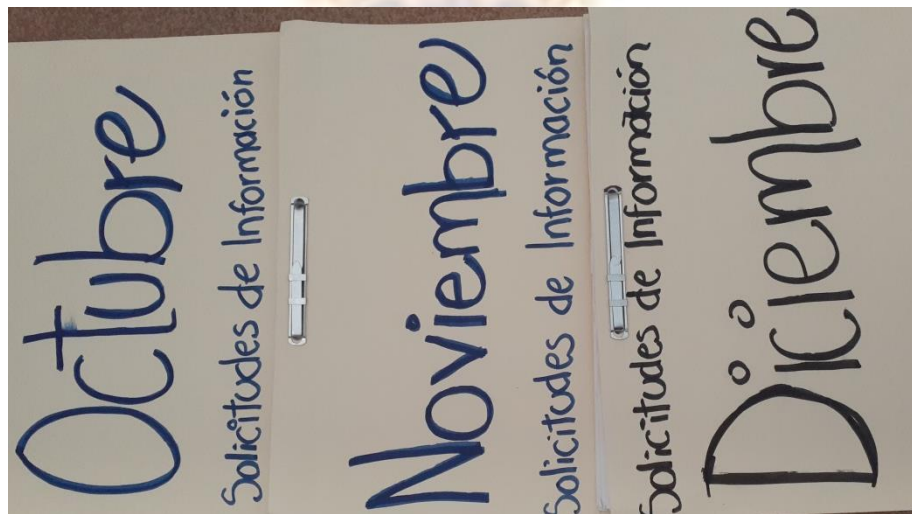 Octubre
Solicitudes de Información
Noviembre
Solicitudes de Información
Solicitudes de Información
Diciembre